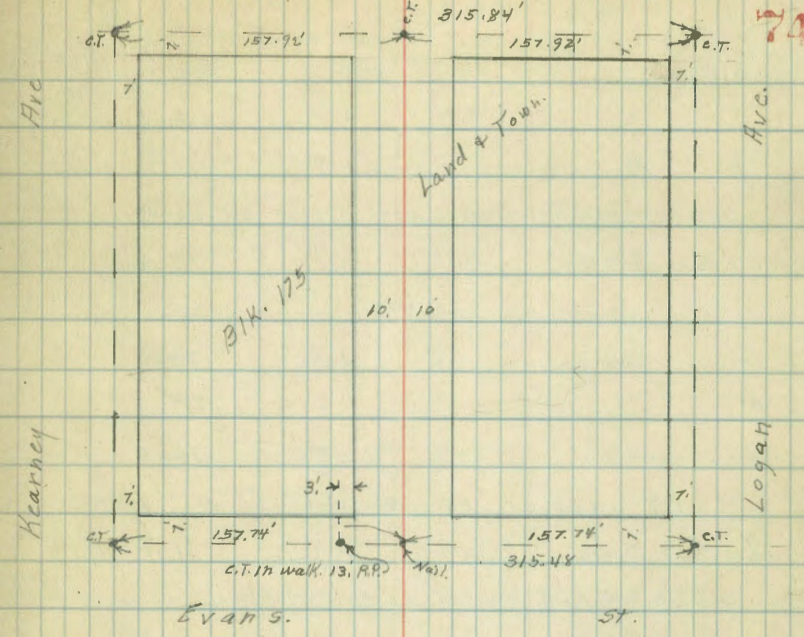 C.T. 315.84'
C.T. 7' 157.92' 157.92' 7' C.T.
7' 7'
Ave Ave.
Land & Town.
Blk. 175
10' 10'
Kearney Logan
3'
7' 7'
C.T. 7' 157.74' 157.74' 7' C.T.
C.T. in walk. 13' R.P. Nail. 315.48
Evans. St.